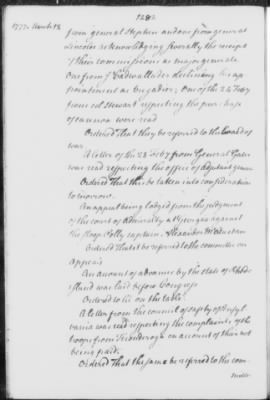 1282
1777. March 12
from general Stephen and one from general
Lincoln acknowledging severally the receipt
of their commissions as major generals
One from J Cadwallader declining his ap
pointment as brigadier; One of the 24 feby
from col Stewart respecting the purchase
of cannon were read
Ordered That they be referred to the board of
war.
A letter of the 28 feby from General Gates
was read respecting the office of adjutant general
Ordered That this be taken into consideration
to morrow.
An appeal being lodged from the judgment
of the court of Admiralty at Georgia against
the sloop Polly captain
Ordered that it be referred to the committee on
Appeals
An account of advances by the state of Rhode
island was laid before Congress
Ordered to lie on the table.
A letter from the council of safety of Pensyl
vania was read respecting the complaints of the
troops from Ticonderoga on account of their not
being paid.
Ordered That the same be referred to the com-
mittee